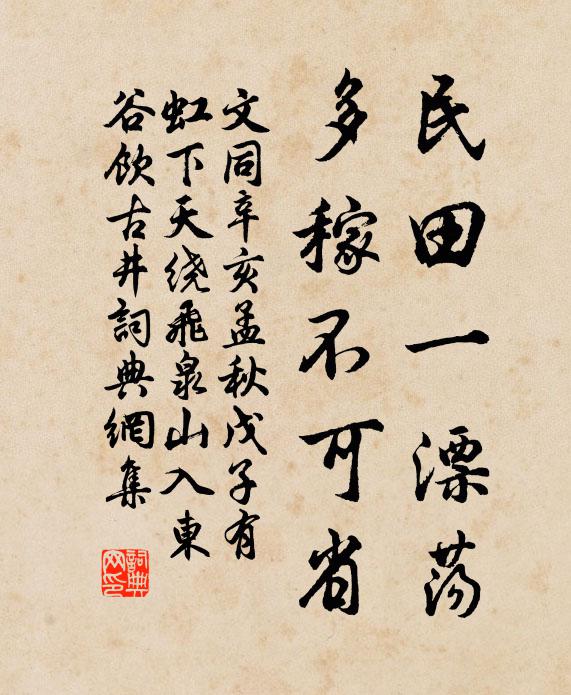 民田一漂荡
多稼不可省
文同辛亥孟秋戊子有
虹下天绕飛泉山入東
谷飲古井詞典網集
詞典网印